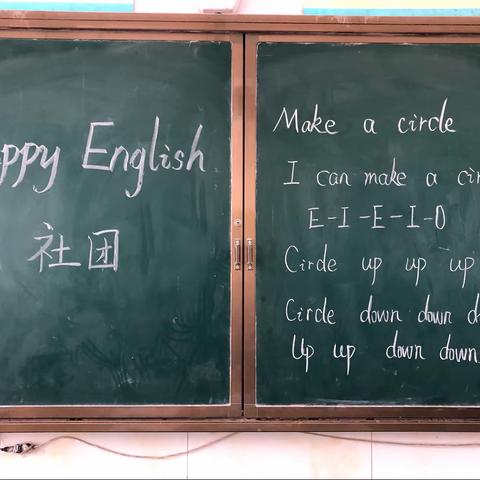 ppy English
社团
Make a circle
I can make a cir
E-I-E-I-O
Circle up up up
Circle down down d
Up up down down